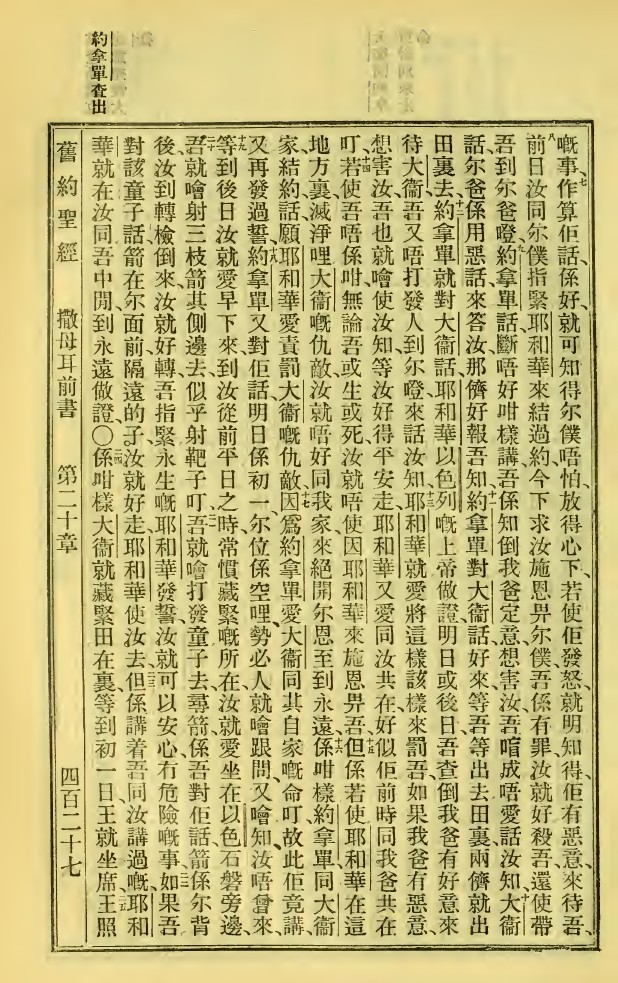 約拿單查出
嘅事、七作算佢話係好、就可知得尔僕唔怕放得心下、若使佢發怒、就明知得佢有惡意、來待吾、
八前日汝同尔僕指緊耶和華來結過約、今下求汝施恩畀尔僕、吾係有罪、汝就好殺吾、還使帶
吾到尔爸噔、九約拿單話、斷唔好咁樣講、吾係知倒我爸定意想害汝、吾喧成唔愛話汝知、十大衛
話、尔爸係用惡話來答汝、那儕好報吾知、十一約拿單對大衛話、好來等吾等出去田裏、兩儕就出
田裏去、十二約拿單就對大衛話、耶和華以色列嘅上帝做證、明日或後日、吾查倒我爸有好意來
待大衛、吾又唔打發人到尔噔來話汝知、十三耶和華就愛將這樣該樣來罰吾、如果我爸有惡意、
想害汝、吾也就噲使汝知、等汝好得平安走、耶和華又愛同汝共在、好似佢前時同我爸共在
叮、十四若使吾唔係咁、無論吾或生或死、汝就唔使因耶和華來施恩畀吾、十五但係若使耶和華在這
地方裏滅淨哩大衛嘅仇敵、汝就唔好同我家來絕開尔恩至到永遠、十六係咁樣約拿單同大衛
家結約話、願耶和華愛責罰大衛嘅仇敵、十七因爲約拿單愛大衛同其自家嘅命叮、故此佢竟講
又再發過誓、十八約拿單又對佢話、明日係初一、尔位係空哩、勢必人就噲跟問、又噲知汝唔曾來、
十九等到後日、汝就愛早下來到汝從前平日之時常慣藏緊嘅所在、汝就愛坐在以色石磐旁邊、
二十吾就噲射三枝箭其側邊去、似乎射靶子叮、二一吾就噲打發童子去尋箭、係吾對佢話、箭係尔背
後、汝到轉檢倒來、汝就好轉、吾指緊永生嘅耶和華發誓、汝就可以安心冇危險嘅事、二二如果吾
對該童子話、箭在尔面前隔遠的子、汝就好走、耶和華使汝去、二三但係講着吾同汝講過嘅、耶和
華就在汝同吾中間到永遠做證、〇二四係咁樣大衛就藏緊田在裏、等到初一日、王就坐席、二五王照
舊約聖經 撒母耳前書 第二十章 四百二十七